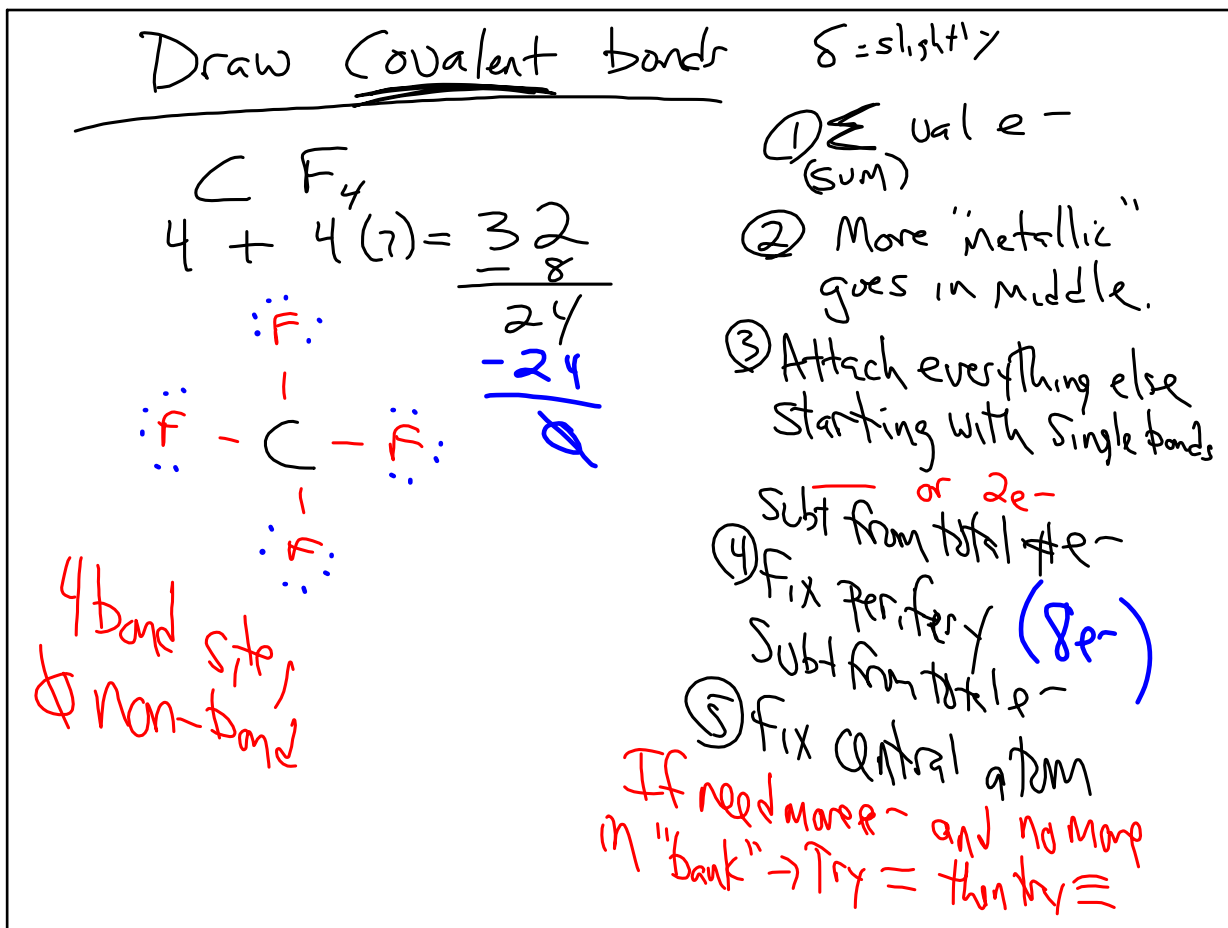 Draw Covalent bonds
δ = slightly
C F₄
4 + 4(7) = 32
- 8
24
- 24
0
F
F - C - F
F
4 bond site,
0 non-bond
① Σ val e-
(SUM)
② More "metallic"
goes in middle.
③ Attach everything else
starting with single bonds
— or 2e-
Subt from total # e-
④ Fix perifery (8e-)
Subt from total e-
⑤ Fix central atom
If need more e- and no more
in "bank" → Try = then try ≡